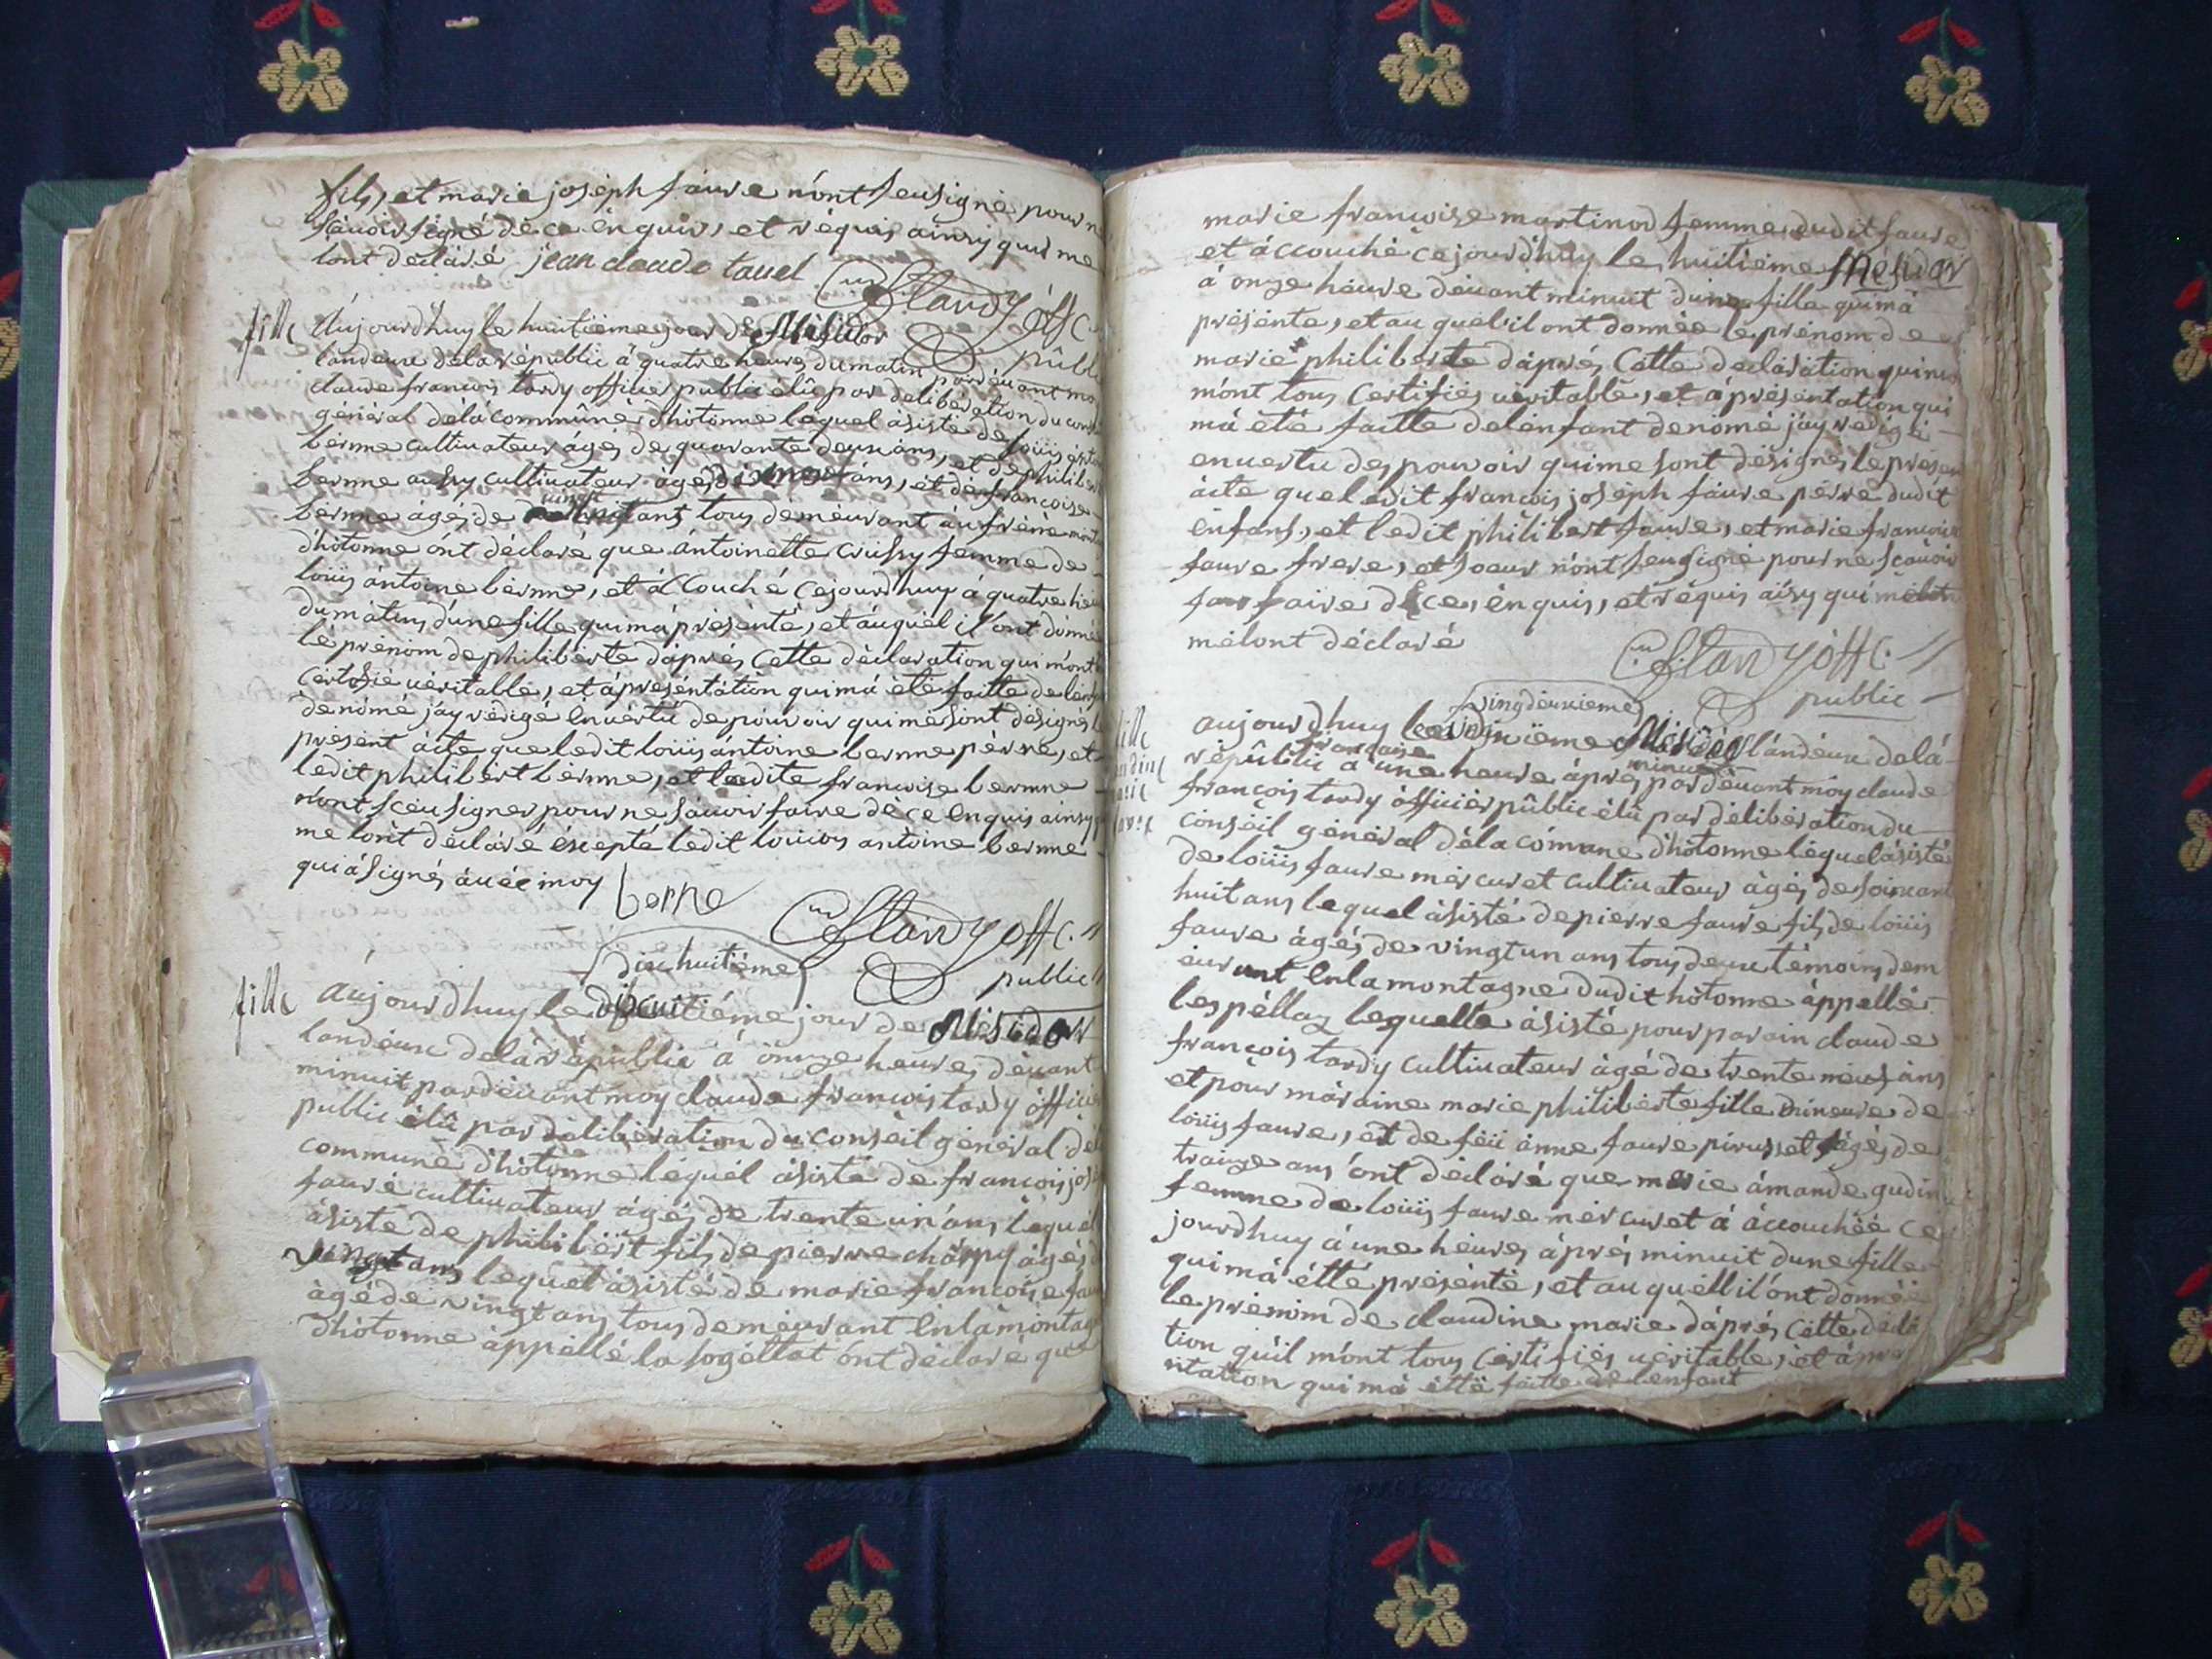 fils, et marie joseph faure nónt seu signé pour ne
scávoir signé dè ce enquis, et réquis ainsy quil me
lónt déclàré jean claude tavel Cn Cftardy off.c
public
fille
áujourdhuy le huitième jour de Mésidor
landeux dela républic à quatre heures du matin pardevant moy
claude francois tardy officier public élû par delibération du conse
général délà commûne d'hòtonne lequel àsisté de loüis antoine
bèrnne cultivateur ágés de quarante deux ans, et de philibert
bernne aussy cultivateur àgés dixneuf ans, et de francoise
bernne ágés de vingt huit ans tous demeurant àu frène
d'hòtonne ònt déclaré que ántoinètte crussy femme de
loüis ántoine bernne, et áccouché cejourdhuy á quatre heu
du màtin dúne fille qui má présénté, et áuquel il ónt donné
lè prénom de philibèrte dáprés cètte dèclaration qui mónt
certifié vèritable, et á présentátion qui má été faitte de lenf
dènómé jáy rédigé en vértü de pouvoir qui mè sont désignés le
présent àcte que ledit loüis ántoine bernne père, et
ledit philibèrt bèrnne, et ladite francoise bernne
nónt sceu signer pour ne sávoir faire dè ce enquis ainsy q
me lónt déclàré éxcepté ledit louis antoine bernne
qui á signés ávéc moy berne
Cn Cftardy off.c
public
dixhuitiéme
fille
áujourdhuy le dishuitiéme jour de Mésidor
landeux delà républic á ònnze heures dévant
minuit pardèvant moy claude francois tardy óffici
public élû par délibération du consèil général dél
commune d'hòtonne lequél àsisté de francois jos
faure cultivateur ágés de trente un ans lequel
àsisté de philibèrt fils de pierre chárpy ágés d
vingt ans lequel àsisté de marie francoise fau
àgé de vingt ans tous demeurant en la montag
d'hòtonne áppellé la sogéttat ónt déclare que
marie francoise martinod femme dudit faure
et áccouché cejourdhuy le huitieme Mésidor
à onze heure dèvant minuit dune fille qui má
présente, et au quel il ont donnée le prénom de
marie philiberte dáprés cètte declaration qui
mónt tous certifiés véritable, et á présentation qui
má été faitte de lénfant denómé jáy rédigé
en vertu des pouvoir qui me sont désignés le présen
àcte que ledit francois joséph faure père dudit
enfans, et ledit philibert faure, et marie francoise
faure frere, et soeur nónt seu signé pour ne scavoir
faire dè ce, enquis, et réquis áisy qui
mélont déclaré
Cn Cftardy off.c
public
vingdeuxieme
fille
claudine
marie
faure
aujourdhuy le Mésidor lándeux delá
républic francaise á une heure áprés minuit pardèvant moy claude
francois tardy òfficièr pûblic élû par délibération du
consèil général dèla cómune d'hòtonne léquel àsisté
de loüis faure mércuret cultivateur ágés de soixant
huit ans lequel àsisté de pierre faure fils de loüis
faure ágés de vingt un ans tous deux témoins dem
eurant en la montagne dudit hòtonne áppellér
lespéllaz lequelle àsisté pour parain claude
françois tardy cultivateur àgé de trente neuf ans
et pour máraine marie philibèrte fille mineure de
loüis faure, et de féü ánne faure ágés de
traize ans ónt déclàré que marie ámande gudin
femme de loüis faure mércuret á áccouchéé ce
jourdhuy á une heures áprés minuit dune fille
qui má étté présénté, et au quéll il ónt donnéé
le prénom de claudine marie dáprés cètte déclá
tion quíl mónt tous certifiés véritable, et á pré
ntation qui má étté faitte de lenfant